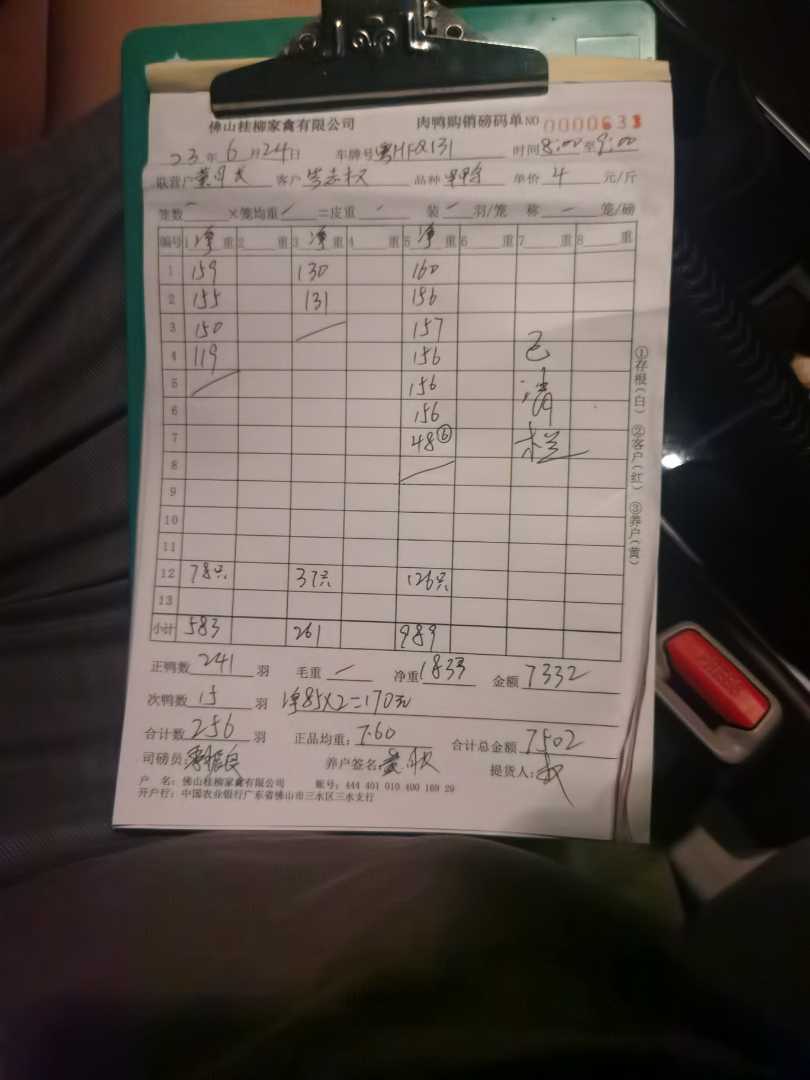 佛山桂柳家禽有限公司 肉鸭购销磅码单 NO 0000633
23年6月24日 车牌号粤HFQ131 时间8:00至9:00
联营户 客户 品种 单价4元/斤
笼数一×笼均重/=皮重/ 装一羽/笼 称一笼/磅
编号 1净重 2重 3净重 4重 5净重 6重 7重 8重
1 159 130 160
2 155 131 156
3 150 157
4 119 156 已
5 156 清
6 156 栏
7 48⑥
8
9
10
11
12 78只 37只 126只
13
小计 583 261 989
正鸭数241羽 毛重/ 净重1833 金额7332
次鸭数15羽 净85×2=170元
合计数256羽 正品均重:7.60 合计总金额7502
司磅员: 养户签名: 提货人:
户 名:佛山桂柳家禽有限公司 账号:444 401 010 400 169 29
开户行:中国农业银行广东省佛山市三水区三水支行
①存根(白) ②客户(红) ③养户(黄)